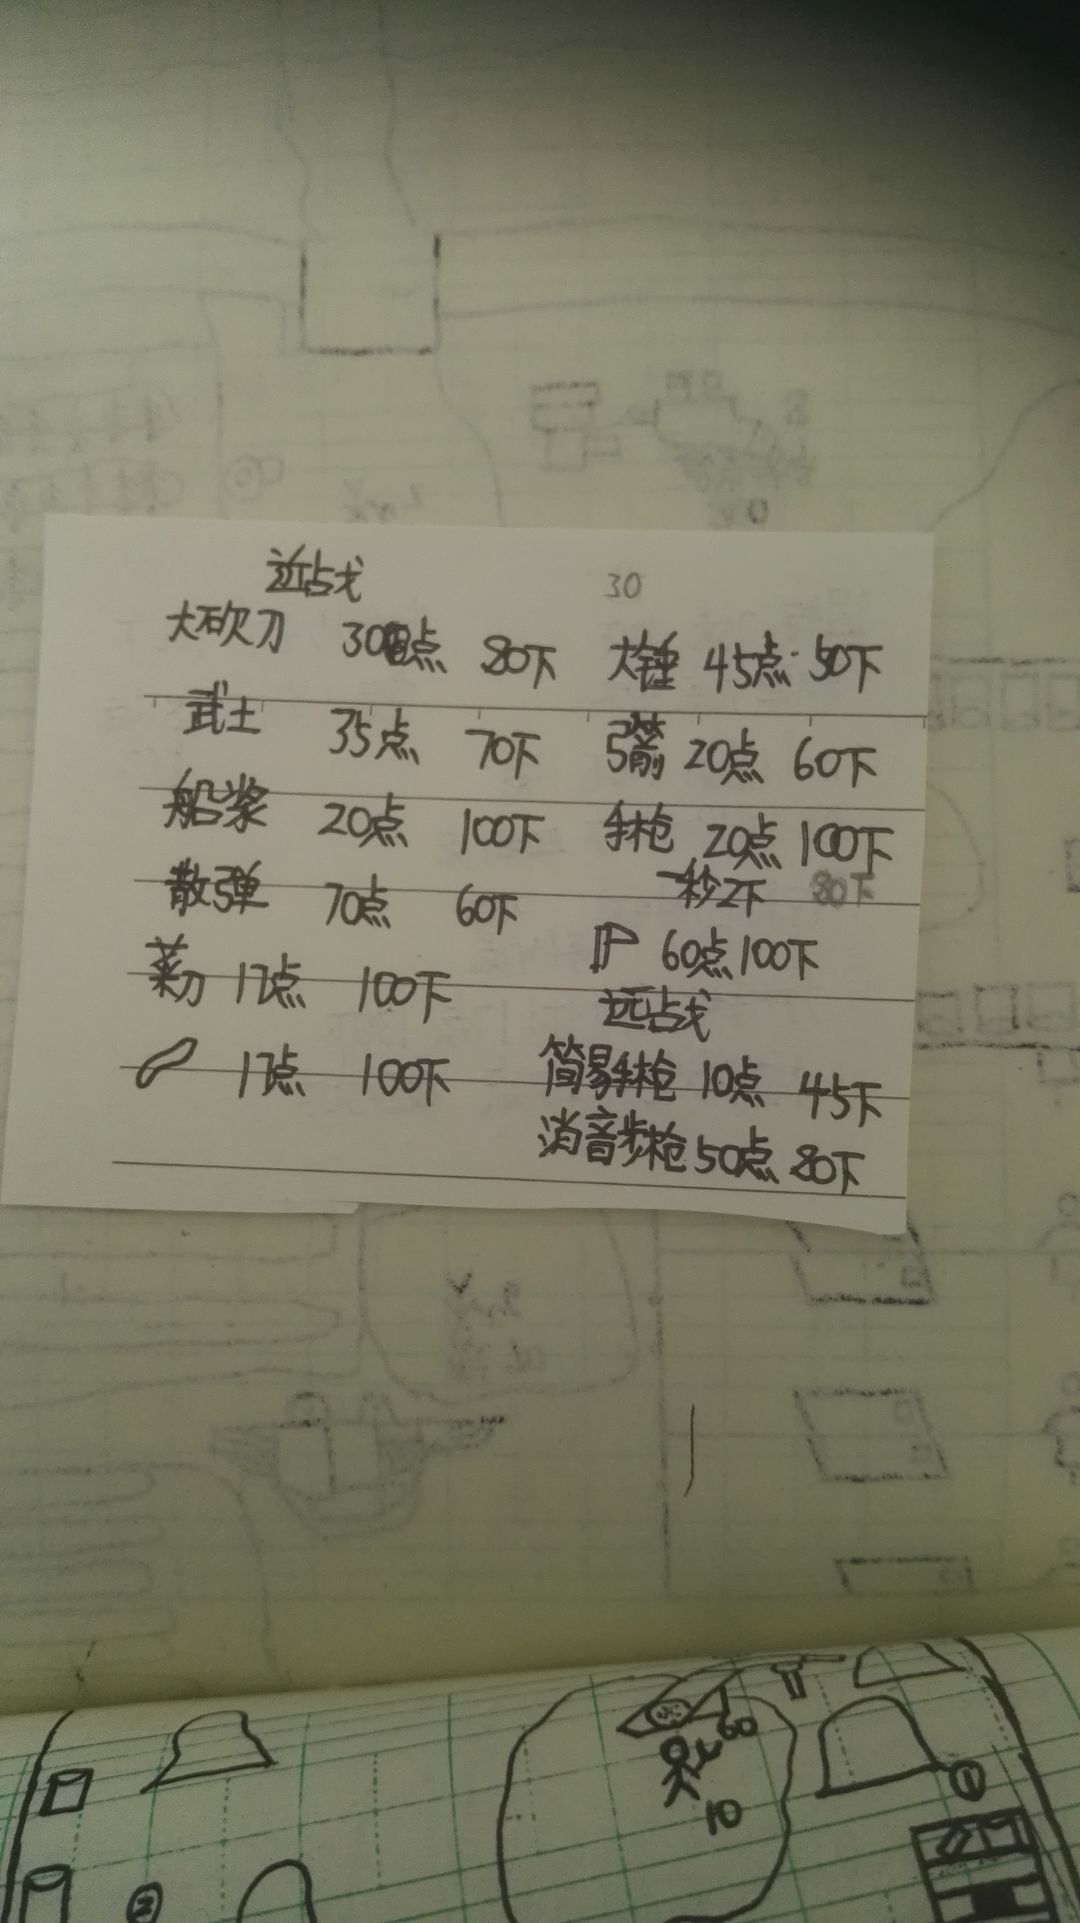 近战
30
大砍刀 30点 80下
武士 35点 70下
船桨 20点 100下
散弹 70点 60下
菜刀 17点 100下
17点 100下
大锤 45点 50下
弓箭 20点 60下
手枪 20点 100下
一秒2下 80下
60点 100下
远战
简易手枪 10点 45下
消音步枪 50点 80下
60
10
①
②